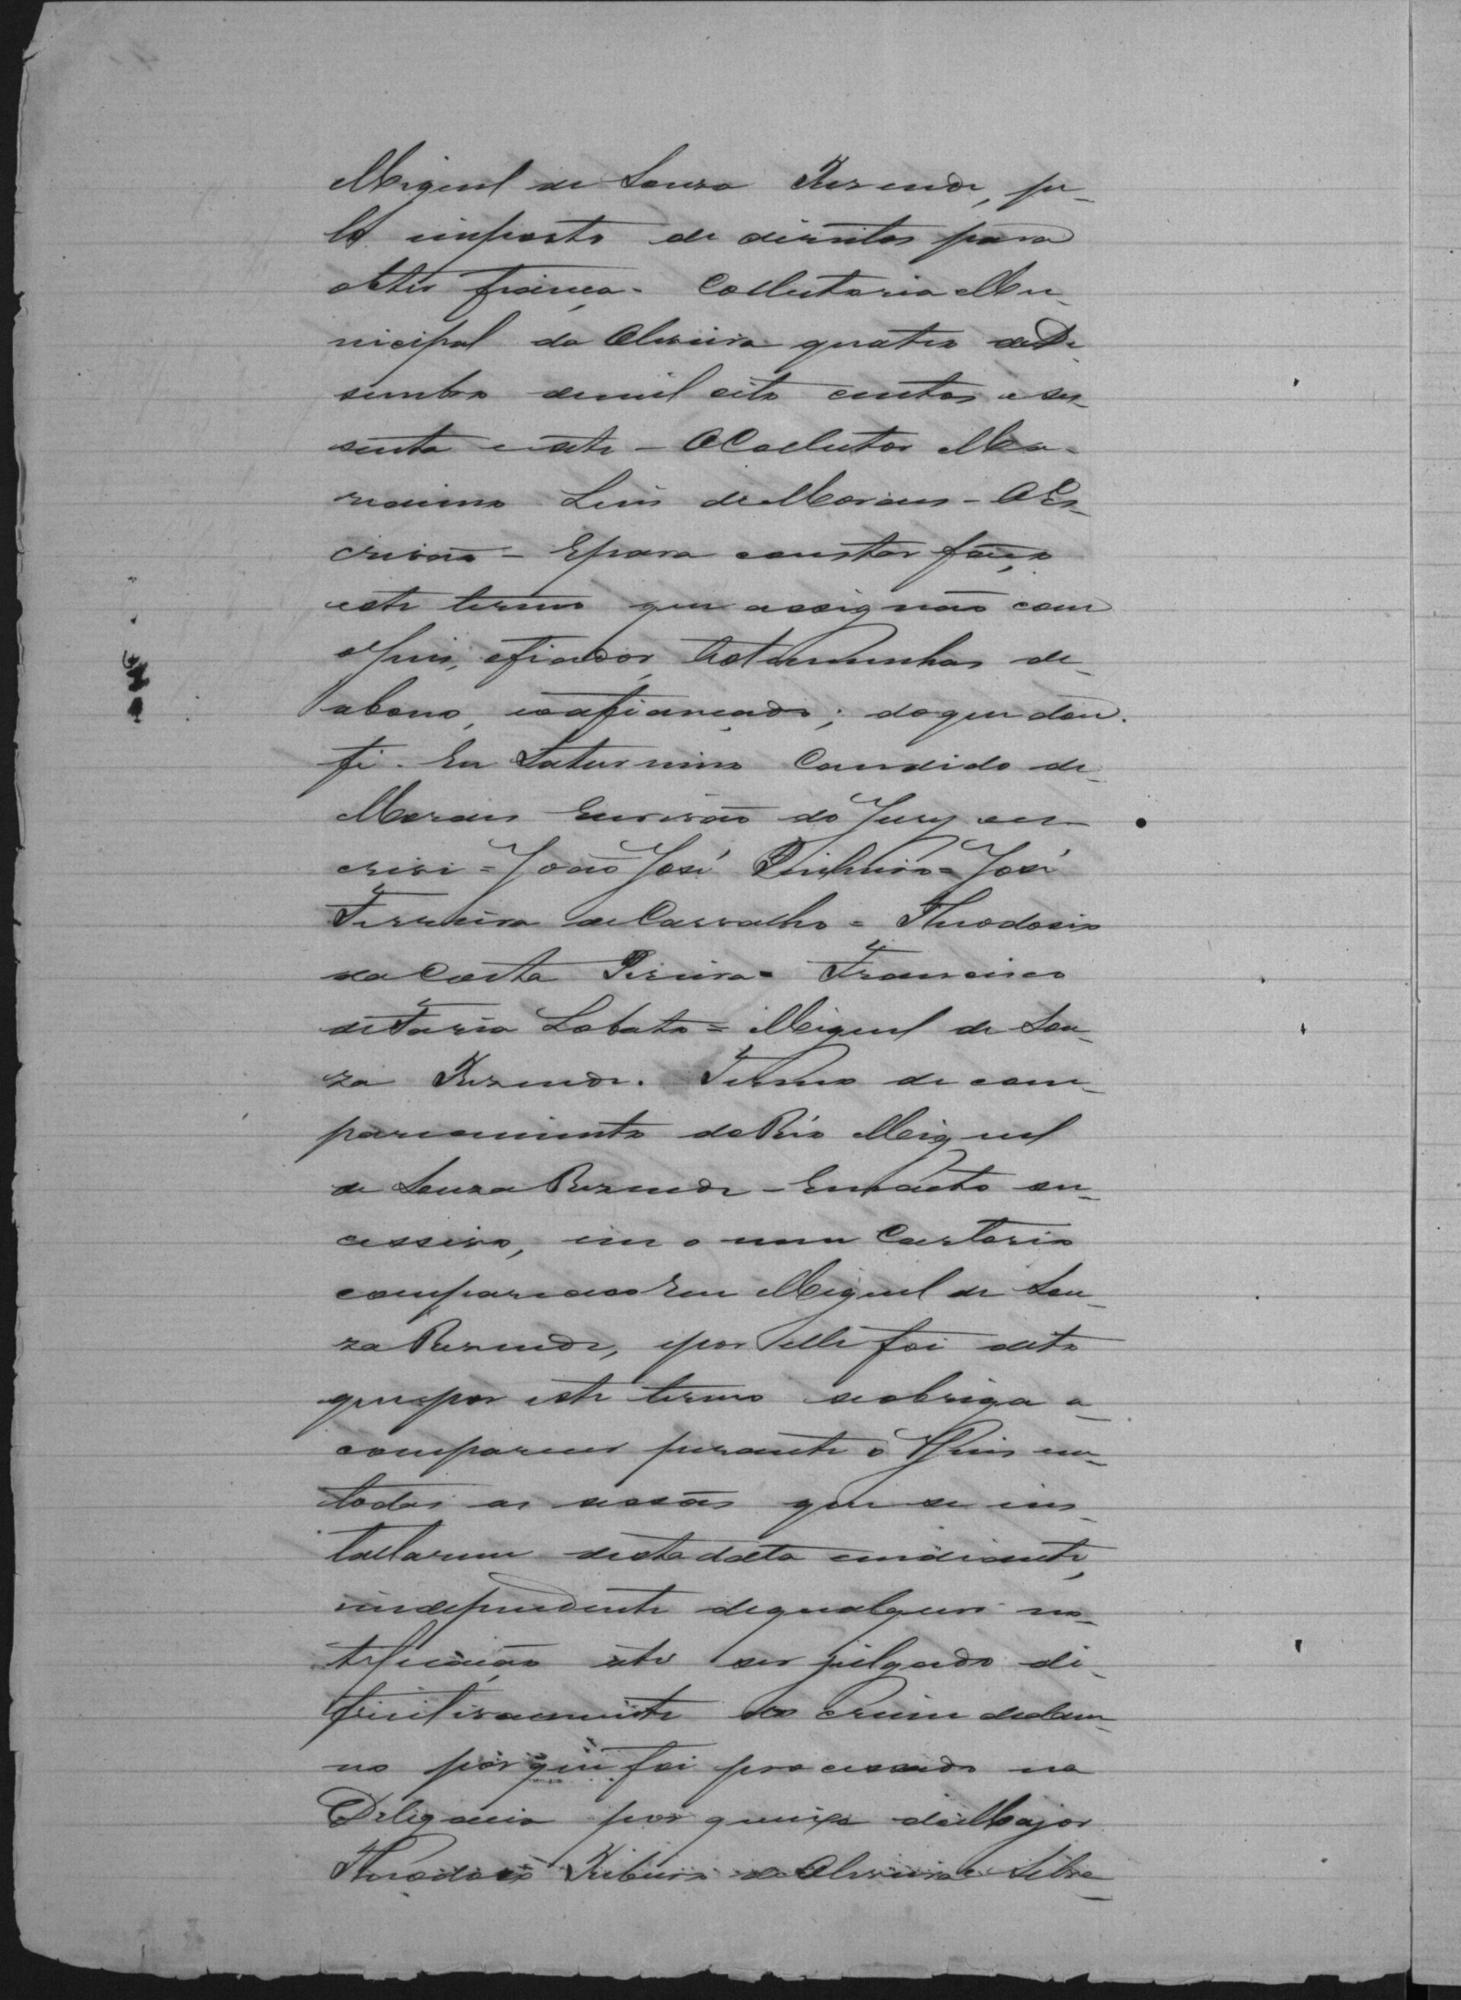 Miguel de Souza Rezende, pe-
lo imposto de direitos para
obter fiança. Collectoria Mu-
nicipal da Oliveira quatro de De-
sembro de mil oito centos e ses-
senta e sete - O Collector Ma-
ximino Luis de Moraes - O Es-
crivão - E para constar faço
este termo que assignão com
o Juis, fiador, testemunhas de
abono, e o afiançado; do que dou
fé. Eu Saturnino Candido de
Moraes Escrivão do Jury es-
crivi = João José Pinheiro = José
Ferreira de Carvalho = Theodosio
da Costa Pereira = Francisco
de Faria Lobato = Miguel de Sou-
za Rezende. Termo de com-
parecimento do Réo Miguel
de Souza Rezende - Em acto su-
cessivo, em o meu Cartorio
compareceo Miguel de Sou-
za Rezende, e por elle foi dito
que por este termo se obriga a
comparecer perante o Juis em
todas as sessões que se ins-
tallarem desta data em diante,
independente de qualquer no-
tificação até ser julgado de-
finitivamente do crime de dam-
no por que foi processado na
Delegacia por queixa do Major
Theodosio Ribeiro de Oliveira e Silva